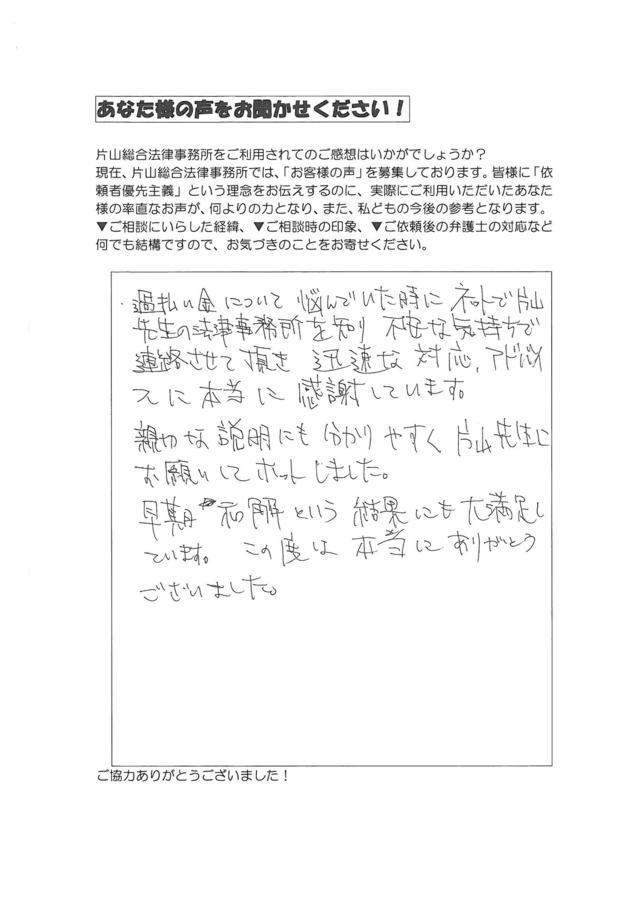 あなた様の声をお聞かせください！
片山総合法律事務所をご利用されてのご感想はいかがでしょうか？
現在、片山総合法律事務所では、「お客様の声」を募集しております。皆様に「依
頼者優先主義」という理念をお伝えするのに、実際にご利用いただいたあなた
様の率直なお声が、何よりの力となり、また、私どもの今後の参考となります。
▼ご相談にいらした経緯、▼ご相談時の印象、▼ご依頼後の弁護士の対応など
何でも結構ですので、お気づきのことをお寄せください。
過払い金について 悩んでいた時に ネットで片山
先生の法律事務所を知り 不安な気持ちで
連絡させて頂き 迅速な対応、アドバイ
スに本当に感謝しています。
親切な説明にも分かりやすく 片山先生に
お願いしてホットしました。
早期 和解という結果にも大満足し
ています。 この度は 本当にありがとう
ございました。
ご協力ありがとうございました！